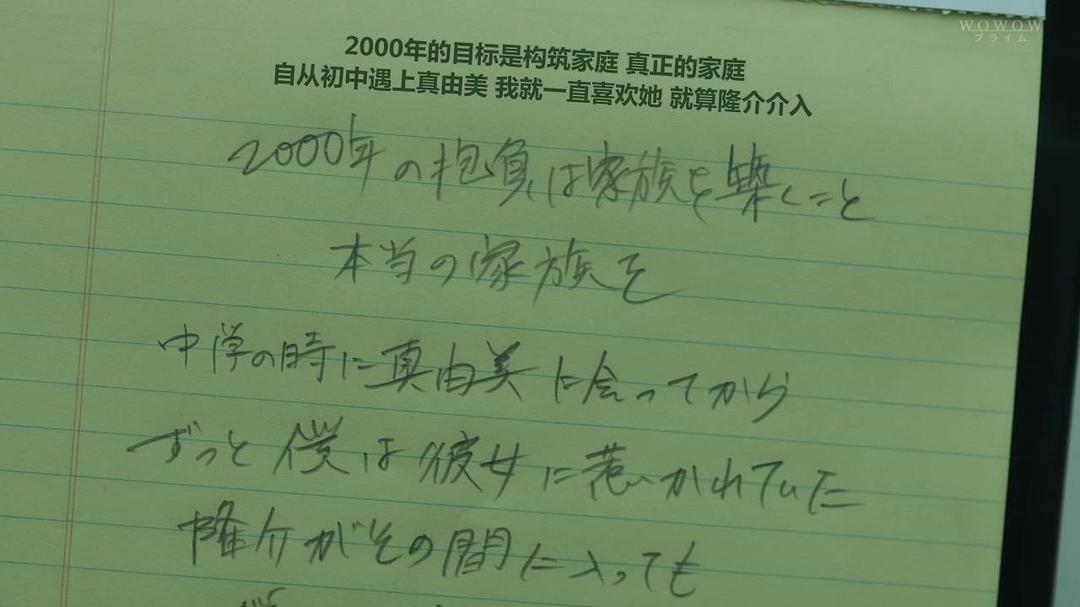 WOWOW
プライム
2000年的目标是构筑家庭 真正的家庭
自从初中遇上真由美 我就一直喜欢她 就算隆介介入
2000年の抱負は家族を築くこと
本当の家族を
中学の時に真由美に会ってから
ずっと僕は彼女に惹かれていた
隆介がその間に入っても